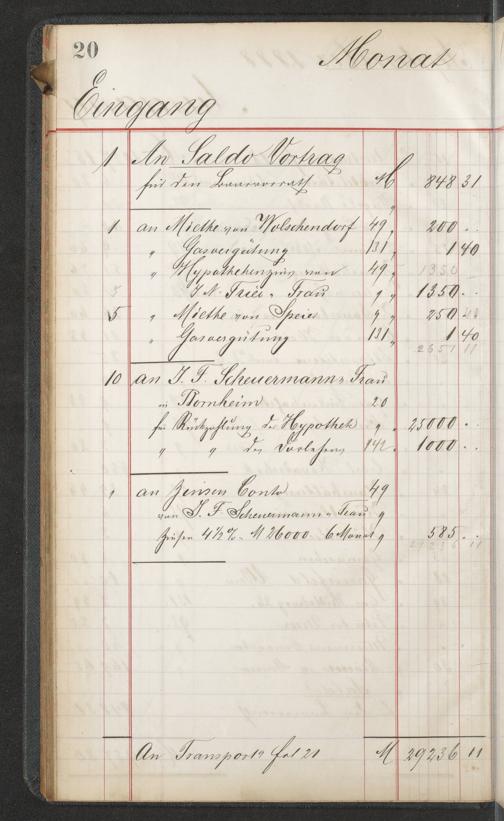 20
Monat
Eingang
1 An Saldo Vortrag
für den Baarvorrath M 848 31
1 an Miethe von Wolschendorf 49 " 200 . .
" Gasvergütung 131 " 1 40
" Hypothekenzins von 49 " 1350
5 J. N. Friei u. Frau 9 " 1350 . .
5 " Miethe von Speier 9 " 250 . .
" Gasvergütung 131 " 1 40
2651 11
10 an J. F. Scheuermann u. Frau
in Bornheim 20
für Rückzahlung der Hypothek 9 " 25000 . .
" " des Darlehens 142 . 1000 . .
" an Zinsen Conto 49
von J. F. Scheuermann u. Frau 9
Zinsen 4½% M 26000 6 Monat 9 585 . .
29236 11
An Transport a fol 21 M 29236 11